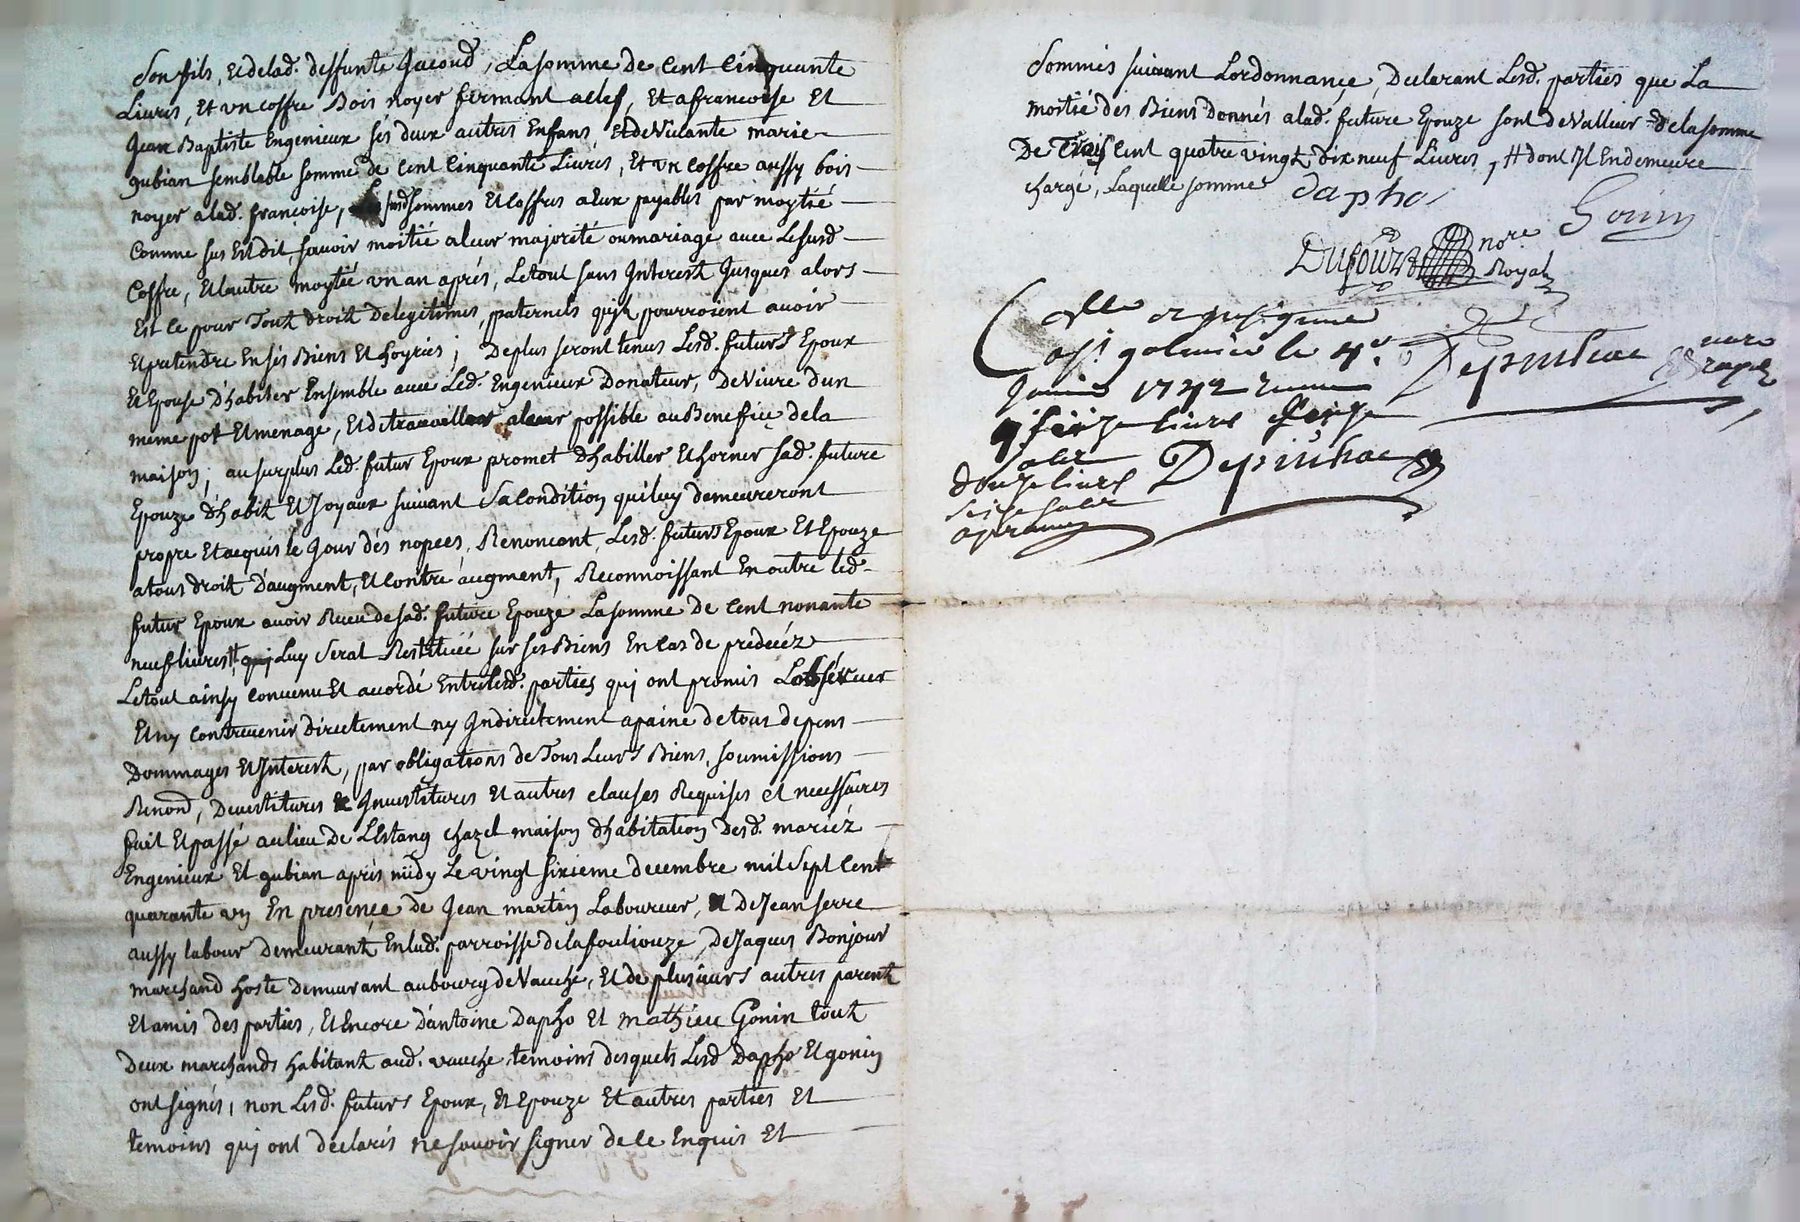 Son fils, Et de lad. deffunte Jacoud, La somme de Cent Cinquante
Livres, Et vn coffre Bois noyer fermant a clef, Et a francoise Et
Jean Baptiste Engenieux ses deux autres Enfans, Et de Vivante marie
gubian semblable somme de Cent Cinquante Livres, Et vn coffre aussy bois
noyer a lad. francoise, sommes Et Coffres a Eux payables par moytié
Comme sus Est dit, scavoir moitié a leur majorité ou mariage avec Le susd
Coffre, Et l'autre moytié vn an aprés, Le tout sans Interest Jusques alors
Est ce pour Tout droit de legitimes, paternels qu'jls pourroient avoir
Et pretendre En ses Biens Et hoyries; De plus seront tenus Lesd. futurs Epoux
Et Epouse d'habiter Ensemble avec Led. Engenieux Donateur, De Vivre d'un
meme pot Et menage, Et de travailler a leur possible au Benefice de la
maison; au surplus Led. futur Epoux promet d'habiller Et horner sad. future
Epouze d'habit Et Joyaux suivant Sa Condition qui luy demeureront
propre Et acquis le Jour des nopces, Renoncant Lesd. futurs Epoux Et Epouze
a tous droit d'augment, Et Contre augment, Reconnoissant En outre led.
futur Epoux avoir Receu de sad. future Epouze La somme de Cent nonante
neuf livres # quj Luy Serat Restituéé sur ses Biens En Cas de predecéz
Le tout ainsy Convenu Et accordé Entre lesd. parties quj ont promis L'observer
Et ny Contrevenir directement ny Indirectement a paine de tous depens
Dommages Et Interest, par obligations de Tous Leurs Biens, soumissions
Renond, Devestitures & Investitures Et autres clauses Requises et necessaires
fait Et passé au lieu de L'Estang chazel maison d'habitation desd. mariéz
Engenieux Et gubian aprés midy Le vingt sixieme decembre mil Sept Cent
quarante vn En presence de Jean martin Laboureur, & De Jean serre
aussy labour Demeurant En lad. parroisse de la fouliouze, De Jaques Bonjour
marchand hoste Demeurant au bourg de Vauche, Et de plusieurs autres parent
Et amis des parties, Et Encore D'antoine Dapho Et mathieu Gonin tout
Deux marchands habitant aud. vauche temoins desquels Lesd Dapho Et gonin
ont signés, non Lesd. futurs Epoux, Et Epouze Et autres parties Et
temoins quj ont déclarés ne scavoir signer de ce Enquis Et
Sommés suivant Lordonnance, Declarant Lesd. parties que La
moitié des Biens Donnés a lad. future Epouze sont de Valleur de la somme
De Trois Cent quatre vingt dix neuf Livres, # dont Jl En demeure
chargé, Laquelle somme
dapho
Gonin
Dufour nore.
Royal
a St galmier le 4e.
Janvier 1742
Seize livres
Depiuhac
douze livres